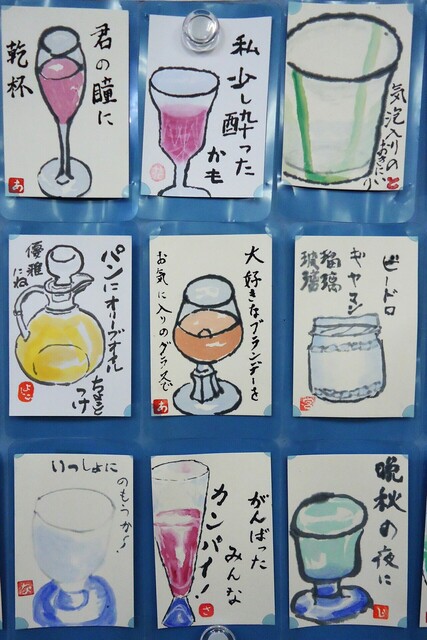 君の瞳に
乾杯
あ
私
少し酔った
かも
気泡入りの
おきにい
と
パンにオリーブオイル
ちょっと
つけ
優雅
にね
よこ
大好きなブランデーを
お気に入りのグラスで
あ
ビードロ
ギヤマン
瑠璃
玻璃
いっしょに
のもうか〜
な
がんばった
みんな
カンパイ!
さ
晩秋の夜に